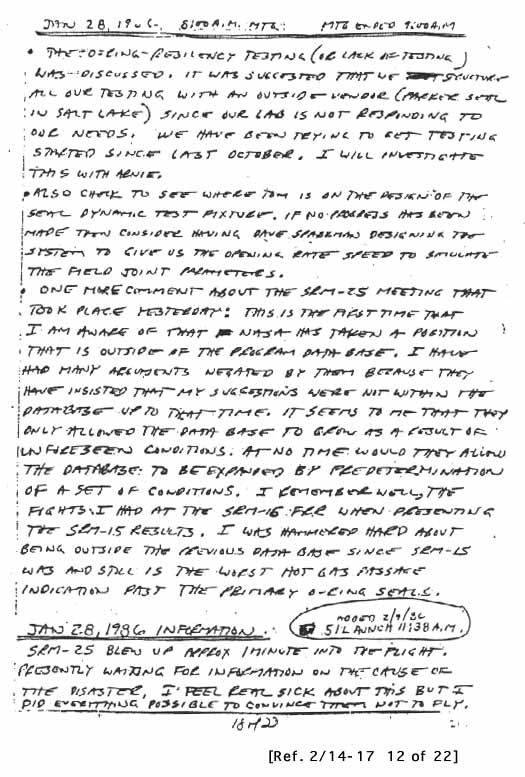 JAN 28, 1986. 8:00 A.M. MTG. MTG ENDED 9:00 A.M
• THE O-RING-RESILENCY TESTING (OR LACK OF TESTING)
WAS DISCUSSED. IT WAS SUGGESTED THAT WE STRUCTURE
ALL OUR TESTING WITH AN OUTSIDE VENDOR (PARKER SEAL
IN SALT LAKE) SINCE OUR LAB IS NOT RESPONDING TO
OUR NEEDS. WE HAVE BEEN TRYING TO GET TESTING
STARTED SINCE LAST OCTOBER. I WILL INVESTIGATE
THIS WITH ARNIE.
• ALSO CHECK TO SEE WHERE TOM IS ON THE DESIGN OF THE
SEAL DYNAMIC TEST FIXTURE. IF NO PROGRESS HAS BEEN
MADE THEN CONSIDER HAVING DAVE SPARKMAN DESIGNING THE
SYSTEM TO GIVE US THE OPENING RATE SPEED TO SIMULATE
THE FIELD JOINT PARAMETERS.
• ONE MORE COMMENT ABOUT THE SRM-25 MEETING THAT
TOOK PLACE YESTERDAY: THIS IS THE FIRST TIME THAT
I AM AWARE OF THAT NASA HAS TAKEN A POSITION
THAT IS OUTSIDE OF THE PROGRAM DATA BASE. I HAVE
HAD MANY ARGUMENTS NEGATED BY THEM BECAUSE THEY
HAVE INSISTED THAT MY SUGGESTIONS WERE NOT WITHIN THE
DATABASE UP TO THAT TIME. IT SEEMS TO ME THAT THEY
ONLY ALLOWED THE DATA BASE TO GROW AS A RESULT OF
UNFORESEEN CONDITIONS. AT NO TIME WOULD THEY ALLOW
THE DATABASE TO BE EXPANDED BY PREDETERMINATION
OF A SET OF CONDITIONS. I REMEMBER WELL, THE
FIGHTS I HAD AT THE SRM-16 FRR WHEN PRESENTING
THE SRM-15 RESULTS. I WAS HAMMERED HARD ABOUT
BEING OUTSIDE THE PREVIOUS DATA BASE SINCE SRM-15
WAS AND STILL IS THE WORST HOT GAS PASSAGE
INDICATION PAST THE PRIMARY O-RING SEALS.
ADDED 2/9/86
JAN 28, 1986 INFORMATION. 51L LAUNCH 11:38 A.M.
SRM-25 BLEW UP APPROX 1 MINUTE INTO THE FLIGHT.
PRESENTLY WAITING FOR INFORMATION ON THE CAUSE OF
THE DISASTER, I FEEL REAL SICK ABOUT THIS BUT I
DID EVERYTHING POSSIBLE TO CONVINCE THEM NOT TO FLY.
18 of 23
[Ref. 2/14-17 12 of 22]